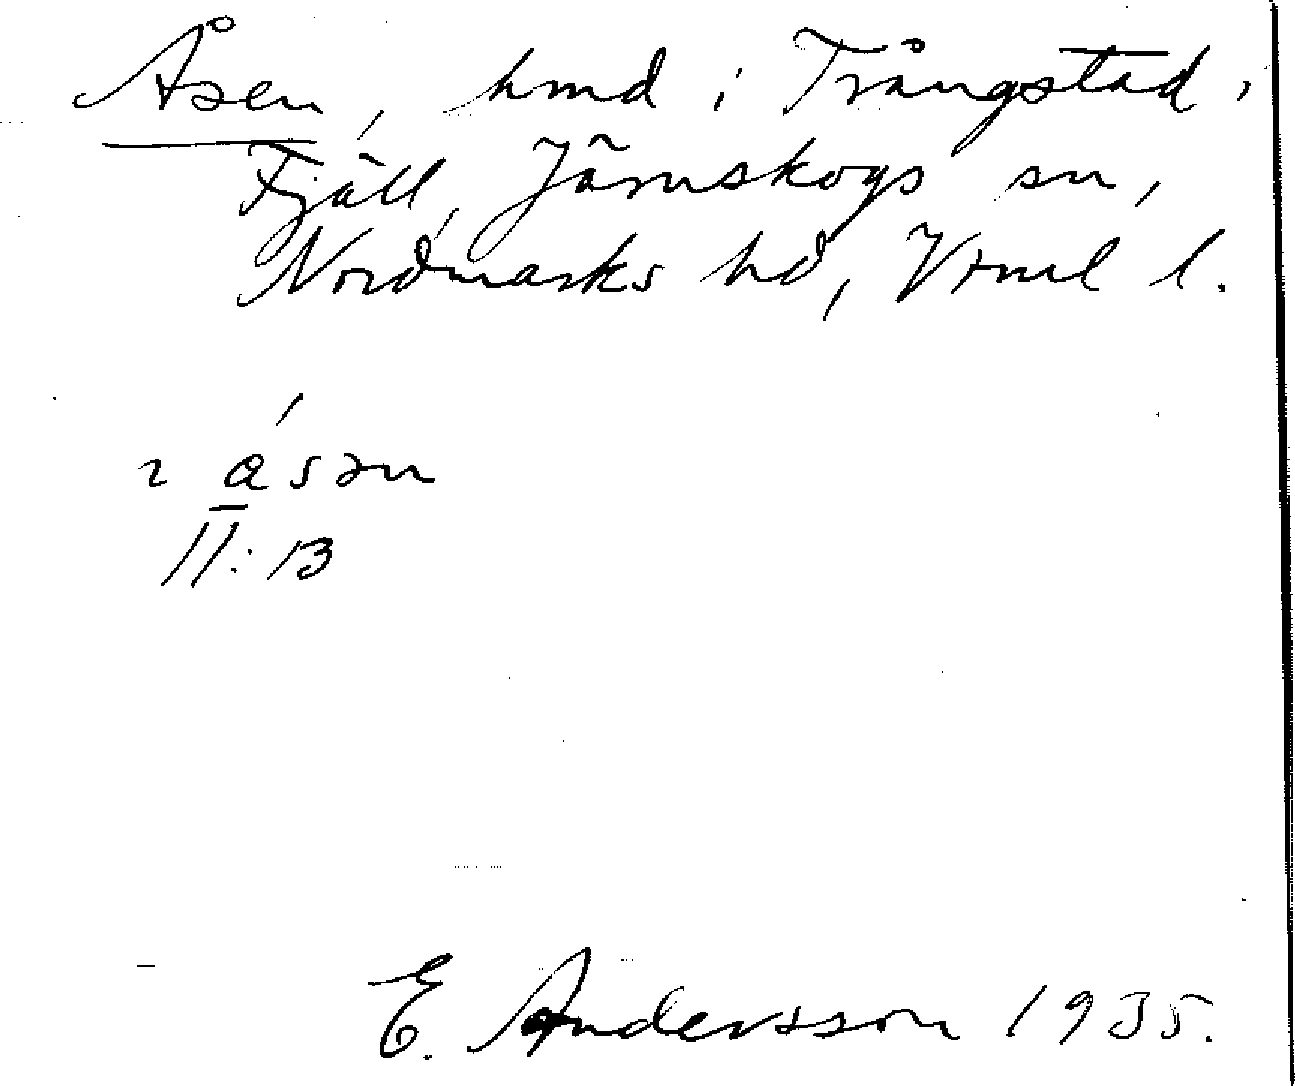 Åsen, hmd i Trångstad i
Fjäll, Järnskogs sn,
Nordmarks hd, Vrml l.
2 ásən
II:13
E. Andersson 1935.